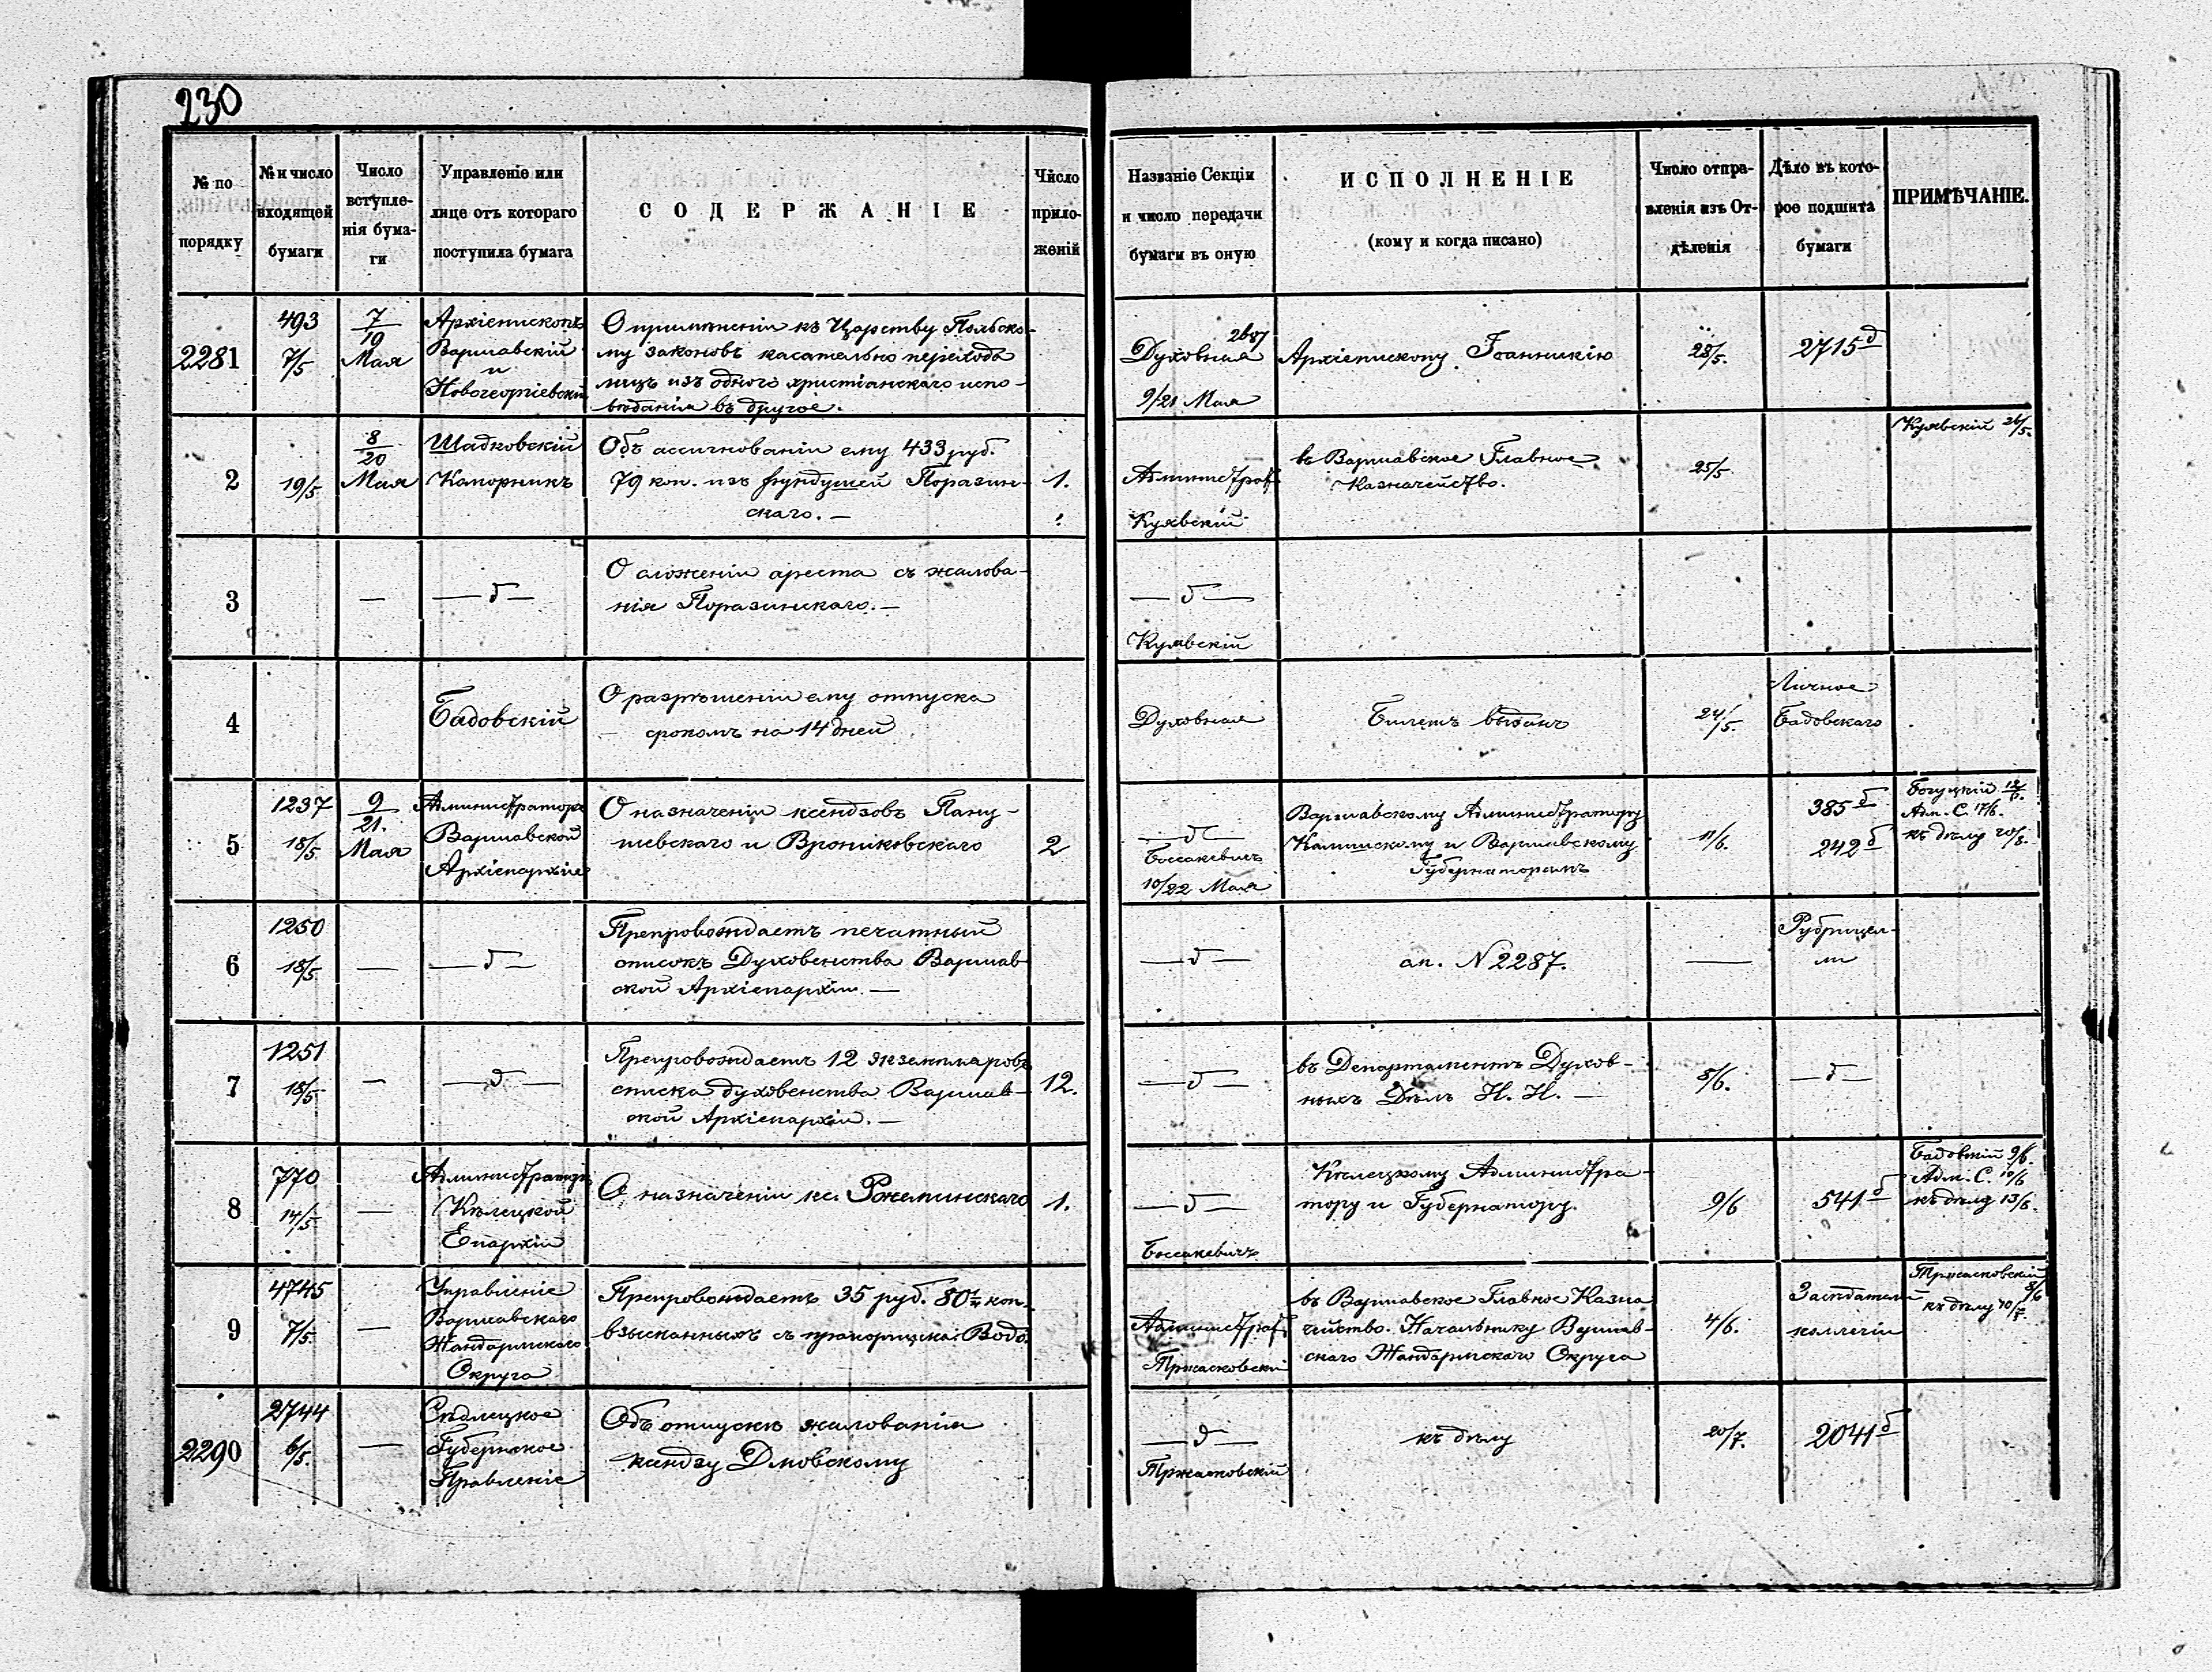 230
№ по порядку
№ и число входящей бумаги
Число вступле-
нія бума-
ги
Управленіе или
лице отъ котораго
поступила бумага
СОДЕРЖАНІЕ
Число
прило-
женій
Названіе Секціи
и число передачи
бумаги въ оную
ИСПОЛНЕНІЕ
(кому и когда писано)
Число отпра-
вленія изъ От-
дѣленія
Дѣло въ кото-
рое подшита
бумаги
ПРИМѢЧАНІЕ.
2281
493
7/5
7/19
Мая
Архіепископъ
Варшавскій
и
Новогеоргіевскій
О примѣненіи къ Царству Польско-
му законовъ касательно перехода
лицъ изъ одного христіанскаго испо-
вѣданія въ другое.
Духовная
9/21 Мая
Архіепископу Іоанникію
28/5.
2715 д
2
19/5
8/20
Мая
Шадковскій
Каморникъ
Объ ассигнованіи ему 433 руб.
79 коп. изъ фундушей Поразин-
скаго. —
1.
Администрат.
Куявскій
въ Варшавское Главное
Казначейство.
25/5
Куявскій 26/5.
3
—
— д —
О сложеніи ареста съ жалова-
нія Поразинскаго. —
— д —
Куявскій
4
Бадовскій
О разрѣшеніи ему отпуска
срокомъ на 14 дней
Духовная
Билетъ выданъ
24/5.
Личное
Бадовскаго
5
1237
18/5
9/21.
Мая
Администраторъ
Варшавской
Архіепархіи
О назначеніи ксендзовъ
и Врониковскаго
2
— д —
Боссакевичъ
10/22 Мая
Варшавскому Администратору
Калишскому и Варшавскому
Губернаторамъ
11/6.
385 б
242 б
Богуцкій
Адм. С. 17/6.
къ дѣлу
6
1250
18/5
—
— д —
Препровождаетъ печатный
списокъ Духовенства Варшав-
ской Архіепархіи. —
— д —
ап. N 2287.
—
Рубрицел-
ли
7
1251
18/5
—
— д —
Препровождаетъ 12 экземпляровъ
списка духовенства Варшав-
ской Архіепархіи. —
12.
— д —
въ Департаментъ Духов-
ныхъ Дѣлъ И. И. —
8/6.
— д —
8
770
14/5
—
Администраторъ
Кѣлецкой
Епархіи
О назначеніи кс. Ржепинскаго
1.
— д —
Боссакевичъ
Кѣлецкому Администра-
тору и Губернатору.
9/6
541 б
Бадовскій 9/6.
Адм. С. 12/6
къ дѣлу 13/6.
9
4745
7/5.
—
Управленіе
Варшавскаго
Жандармскаго
Округа
Препровождаетъ 35 руб. 80½ коп.
взысканныхъ съ прапорщика Водо.
Администрат.
Тржасковскій
въ Варшавское Главное Казна
чейство. Начальнику Варшав-
скаго Жандармскаго Округа
4/6.
Засѣдатели
коллегіи
Тржасковскій
8/6
къ дѣлу
2290
2744
6/5.
—
Сѣдлецкое
Губернское
Правленіе
Объ отпускѣ жалованія
ксендзу Дмовскому
— д —
Тржасковскій
къ дѣлу
20/7.
2041 б